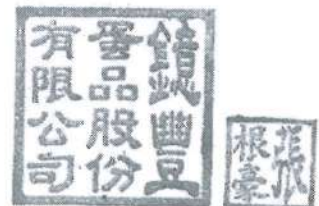 鐿豐
蛋品股份
有限公司
張
根豪